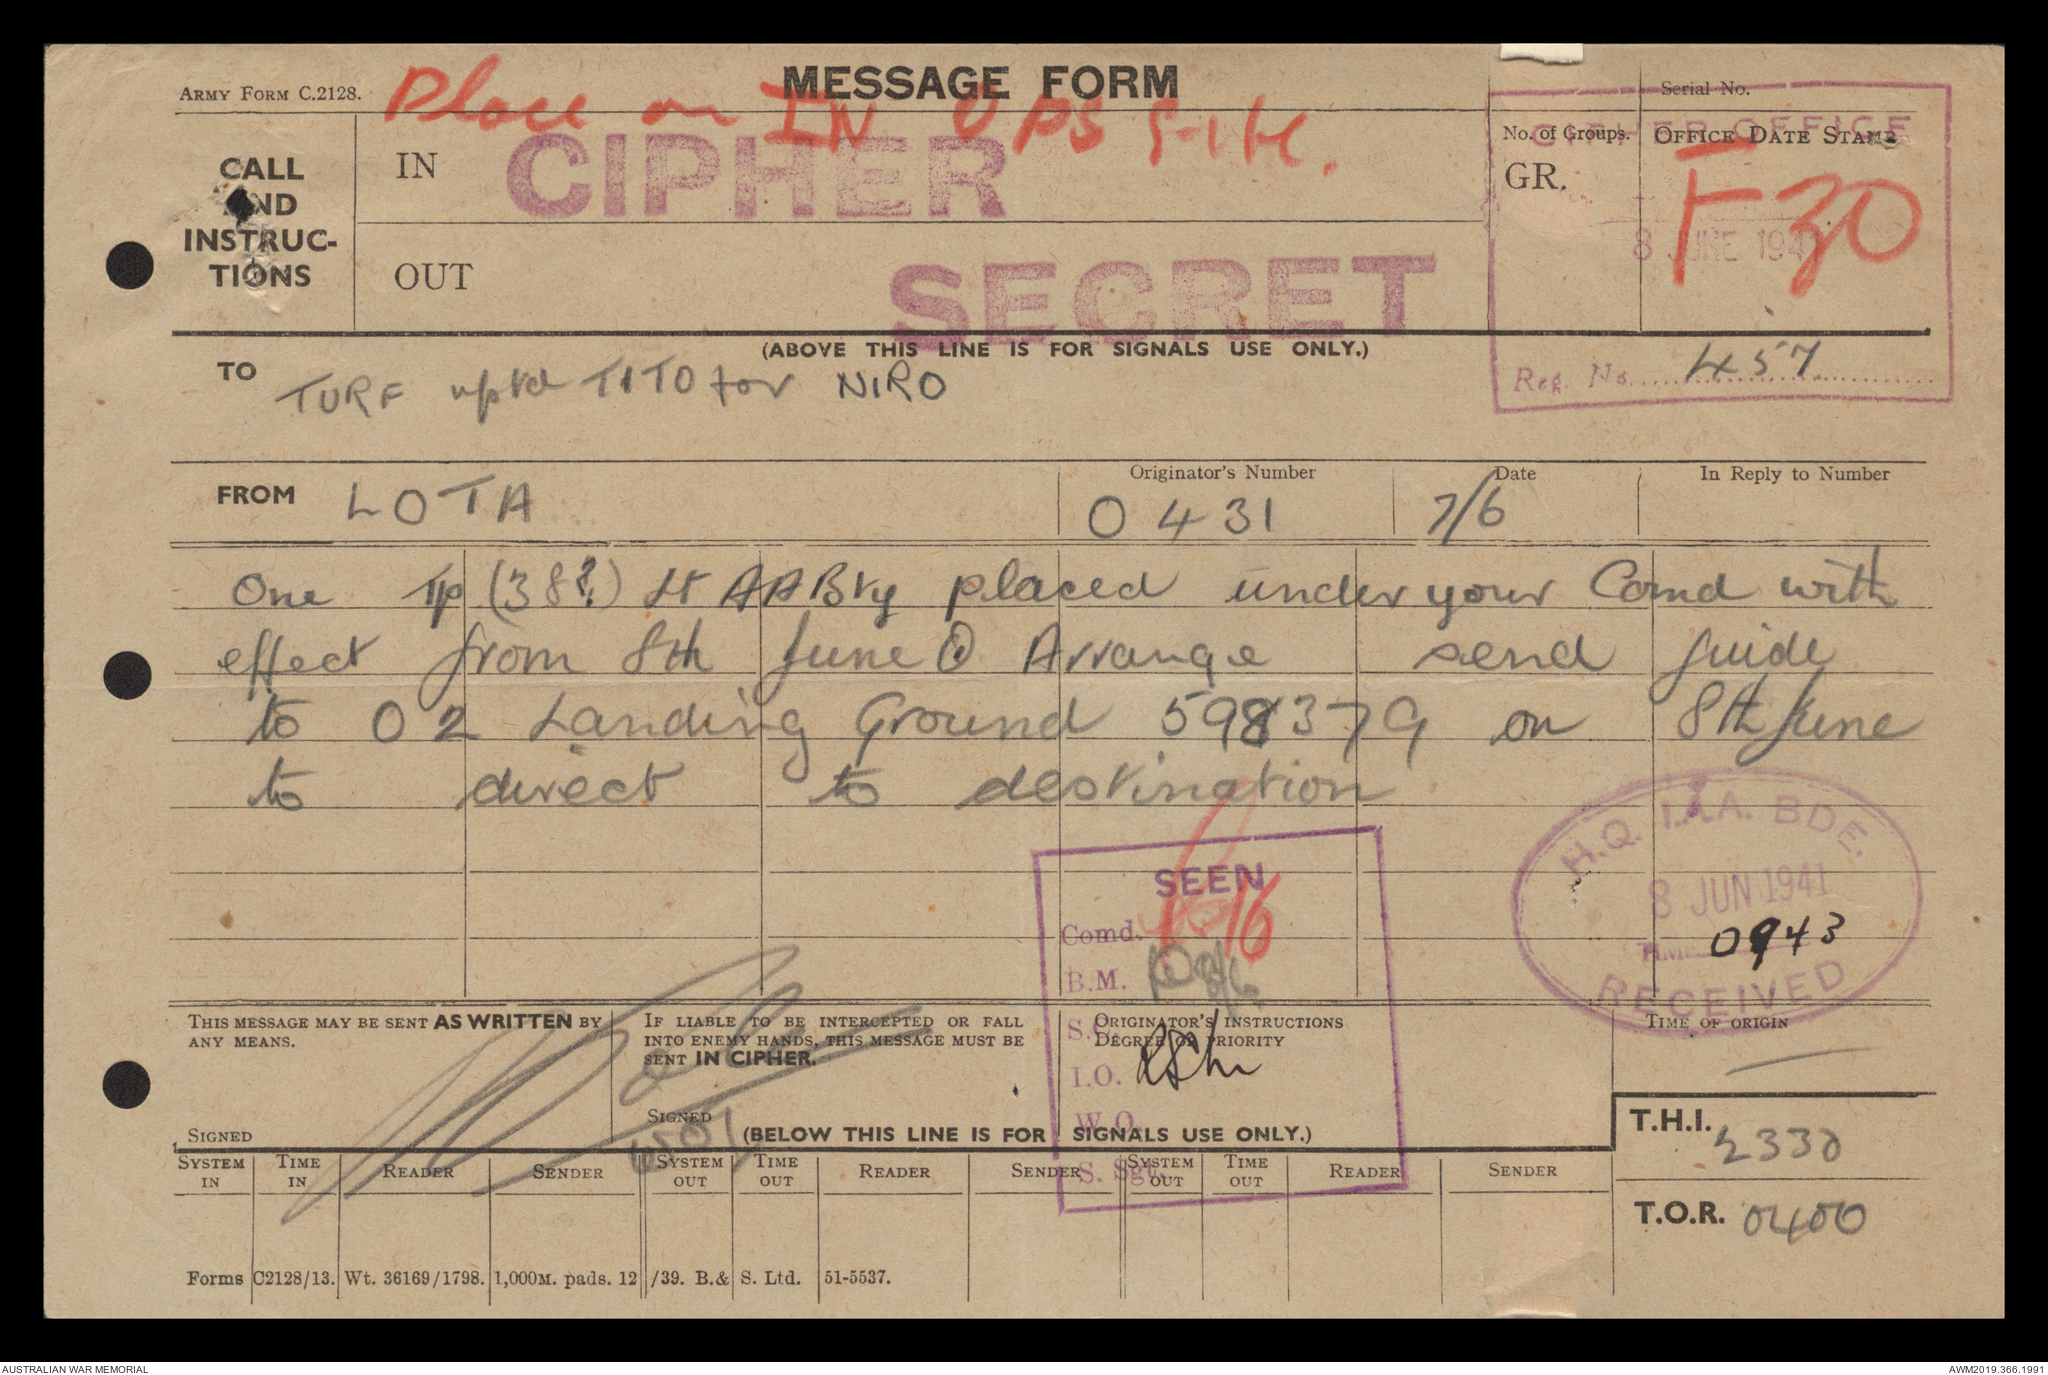 Army Form C.2128.
MESSAGE FORM
Serial No.
Place on IN OPS file.
CALL AND INSTRUC-TIONS
IN
CIPHER
No. of Groups.
GR.
OFFICE DATE STAMP
CIPHER OFFICE
8 JUNE 194
F30
OUT
SECRET
(ABOVE THIS LINE IS FOR SIGNALS USE ONLY.)
Reg. No. 457
TO TURF uptd TITO for NIRO
FROM LOTA
Originator's Number
0431
Date
7/6
In Reply to Number
One Tp (38?) Lt AA Bty placed under your Comd with
effect from 8th June Arrange send guide
to 02 Landing Ground 598379 on 8th June
to direct to destination
H.Q. I.A.A. BDE.
8 JUN 1941
0943
RECEIVED
SEEN
Comd.
B.M.
S.C.
I.O.
W.O.
S. Sgt.
THIS MESSAGE MAY BE SENT AS WRITTEN BY
ANY MEANS.
SIGNED
IF LIABLE TO BE INTERCEPTED OR FALL
INTO ENEMY HANDS, THIS MESSAGE MUST BE
SENT IN CIPHER.
SIGNED
ORIGINATOR'S INSTRUCTIONS
DEGREE OF PRIORITY
TIME OF ORIGIN
(BELOW THIS LINE IS FOR SIGNALS USE ONLY.)
T.H.I. 2330
T.O.R. 0400
SYSTEM IN
TIME IN
READER
SENDER
SYSTEM OUT
TIME OUT
READER
SENDER
SYSTEM OUT
TIME OUT
READER
SENDER
Forms C2128/13. Wt. 36169/1798. 1,000M. pads. 12/39. B.& S. Ltd. 51-5537.
AUSTRALIAN WAR MEMORIAL
AWM2019.366.1991